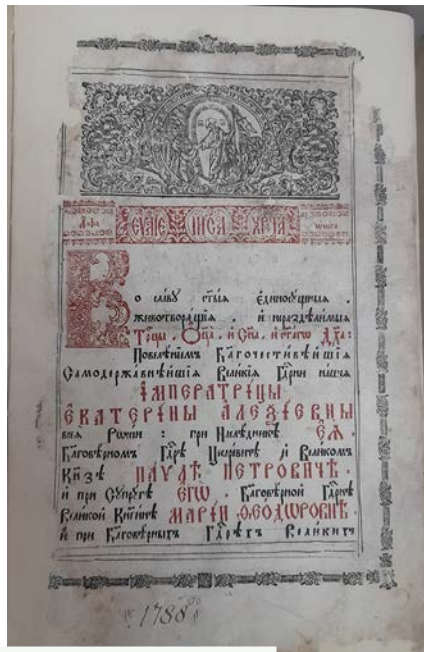 ЕѴⷢ҇ЛІЕ І҆ИСꙊСА ХРⷭ҇ТА
Во сла́вꙋ ст҃ы́ѧ є҆диносꙋ́щныѧ .
животворѧ́щїѧ . и҆ нераздѣ́лимыѧ
Трⷪ҇цы . Ѻ҆ц҃а̀ . и҆ Сн҃а . и҆ ст҃а́гѡ Дх҃а :
Повелѣ́нїемъ Бл҃гочести́вѣйшїѧ
Самодержа́внѣйшїѧ Вели́кїѧ Гдⷭ҇рни на́шеѧ
І҆МПЕРАТРИ́ЦЫ
Е҆КАТЕРИ́НЫ А҆ЛЕѮІ́ЕВНЫ
всеѧ̀ Рѡссі́и : при Наслѣ́дникѣ Е҆Ѧ̀ .
Бл҃говѣ́рномъ Гдⷭ҇рѣ Цесаре́вичѣ и҆ Вели́комъ
Кн҃зѣ ПА́ѴЛѢ ПЕТРО́ВИЧѢ .
и҆ при Сꙋпрꙋ́гѣ Е҆ГѠ̀ . Бл҃говѣ́рной Гдⷭ҇рнѣ
Вели́кой Кн҃ги́нѣ МАРІ́И ѲЕО́ДѠРОВНѢ .
и҆ при Бл҃говѣ́рныхъ Гдⷭ҇рѣхъ Вели́кихъ
1788